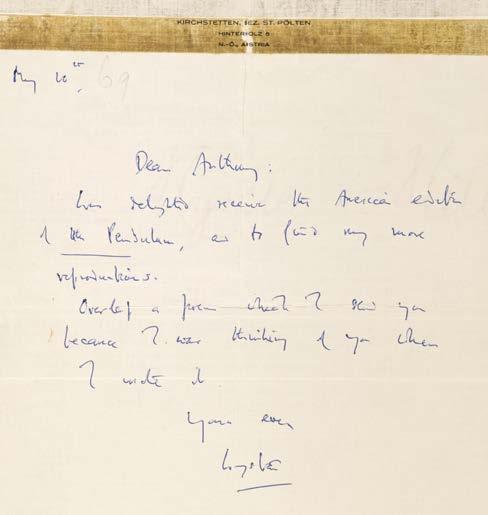 KIRCHSTETTEN, BEZ. ST. PÖLTEN
HINTERHOLZ 6
N.-Ö., AUSTRIA
May 10th, 69
Dear Anthony:
Was delighted receive the American edition
of the Pendulum, and to find many more
reproductions.
Overleaf a poem which I send you
because I was thinking of you when
I wrote it
Yours ever
Wystan